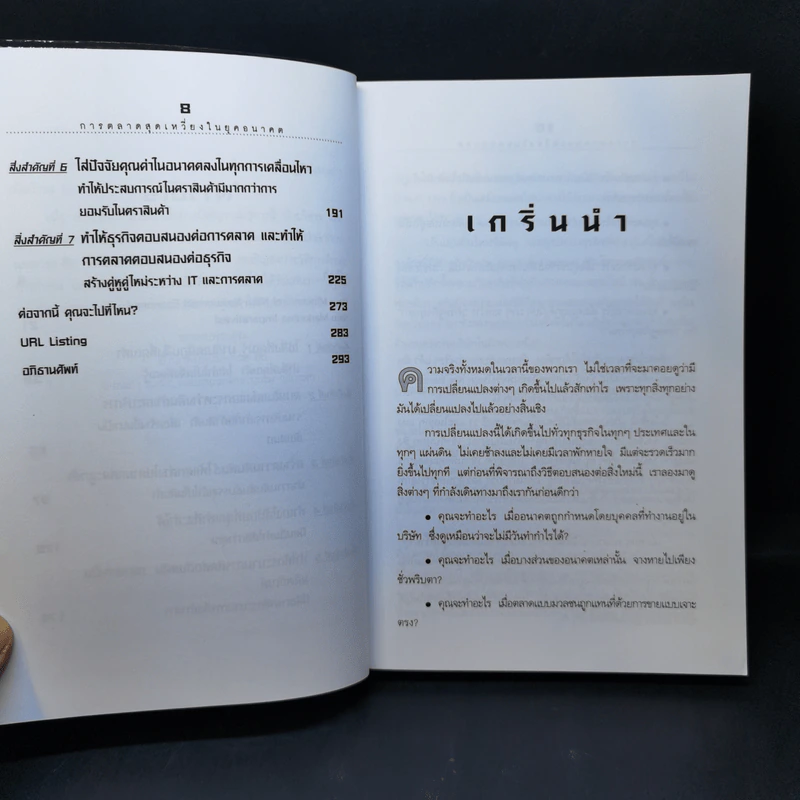 8
การตลาดสุดเหวี่ยงในยุคอนาคต
สิ่งสำคัญที่ 6 ใส่ปัจจัยคุณค่าในอนาคตลงในทุกการเคลื่อนไหว
ทำให้ประสบการณ์ในตราสินค้ามีมากกว่าการ
ยอมรับในตราสินค้า 191
สิ่งสำคัญที่ 7 ทำให้ธุรกิจตอบสนองต่อการตลาด และทำให้
การตลาดตอบสนองต่อธุรกิจ
สร้างคู่หูคู่ใหม่ระหว่าง IT และการตลาด 225
ต่อจากนี้ คุณจะไปที่ไหน? 273
URL Listing 283
อภิธานศัพท์ 293
เกริ่นนำ
ความจริงทั้งหมดในเวลานี้ของพวกเรา ไม่ใช่เวลาที่จะมาคอยดูว่ามี
การเปลี่ยนแปลงต่างๆ เกิดขึ้นไปแล้วสักเท่าไร เพราะทุกสิ่งทุกอย่าง
มันได้เปลี่ยนแปลงไปแล้วอย่างสิ้นเชิง
การเปลี่ยนแปลงนี้ได้เกิดขึ้นไปทั่วทุกธุรกิจในทุกๆ ประเทศและใน
ทุกๆ แผ่นดิน ไม่เคยช้าลงและไม่เคยมีเวลาพักหายใจ มีแต่จะรวดเร็วมาก
ยิ่งขึ้นไปทุกที แต่ก่อนที่พิจารณาถึงวิธีตอบสนองต่อสิ่งใหม่นี้ เราลองมาดู
สิ่งต่างๆ ที่กำลังเดินทางมาถึงเรากันก่อนดีกว่า
• คุณจะทำอะไร เมื่ออนาคตถูกกำหนดโดยบุคคลที่ทำงานอยู่ใน
บริษัท ซึ่งดูเหมือนว่าจะไม่มีวันทำกำไรได้?
• คุณจะทำอะไร เมื่อบางส่วนของอนาคตเหล่านั้น จางหายไปเพียง
ชั่วพริบตา?
• คุณจะทำอะไร เมื่อตลาดแบบมวลชนถูกแทนที่ด้วยการขายแบบเจาะ
ตรง?